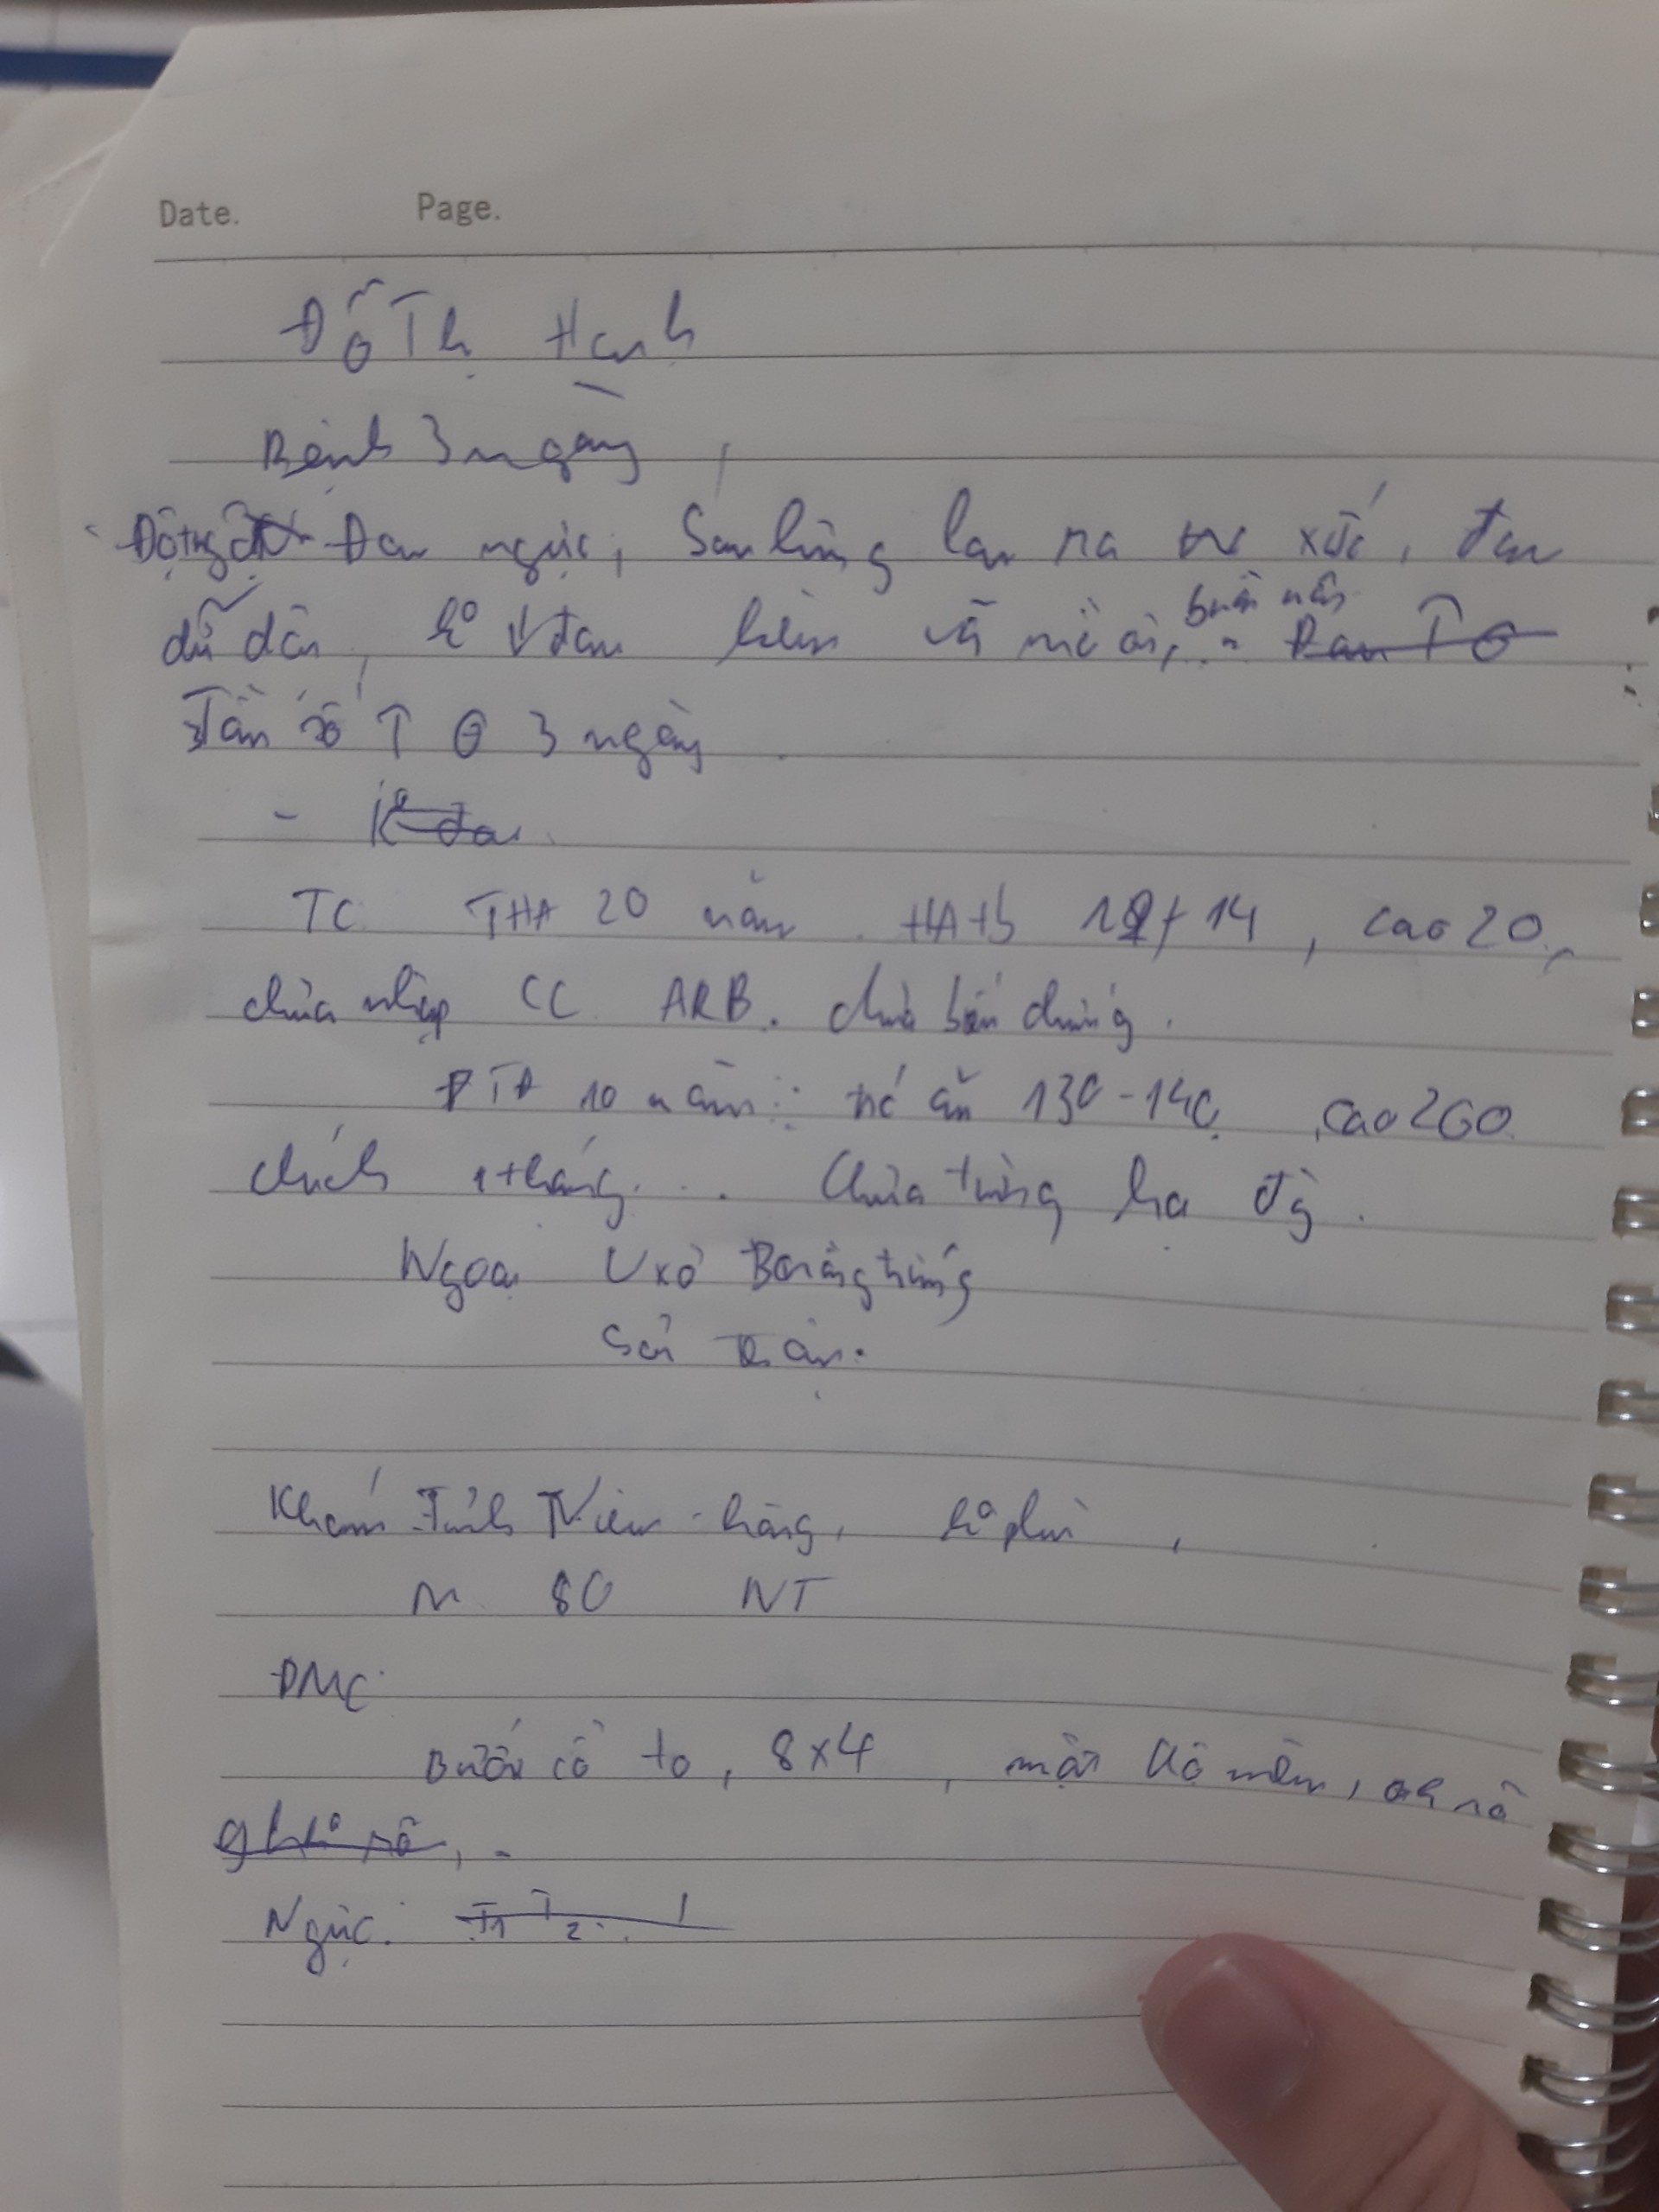 Date. Page.
Đỗ Thị Hạnh
Bệnh 3 ngày
Đau ngực, Sau lưng lan ra xức, đau
buồn nôn
dữ dội, k° ↓ đau kèm vã mồ hôi, Đau ↑ Θ
Tần số ↑ Θ 3 ngày
- K° đau
TC THA 20 năm. HAtb 12/14, cao 20,
chưa nhập CC. ARB. chưa biến chứng.
ĐTĐ 10 năm: trc ăn 130-140, cao 260
chích 1 tháng... Chưa từng hạ đg.
Ngoại U xơ Bàng trứng
Sỏi thận.
Khám Tỉnh N.iêm hồng, k° phù,
M 80 NT
ĐMC
Bướu cổ to, 8x4, mật độ mềm, rõ
gh k° rõ, -
Ngực: T1 T2.